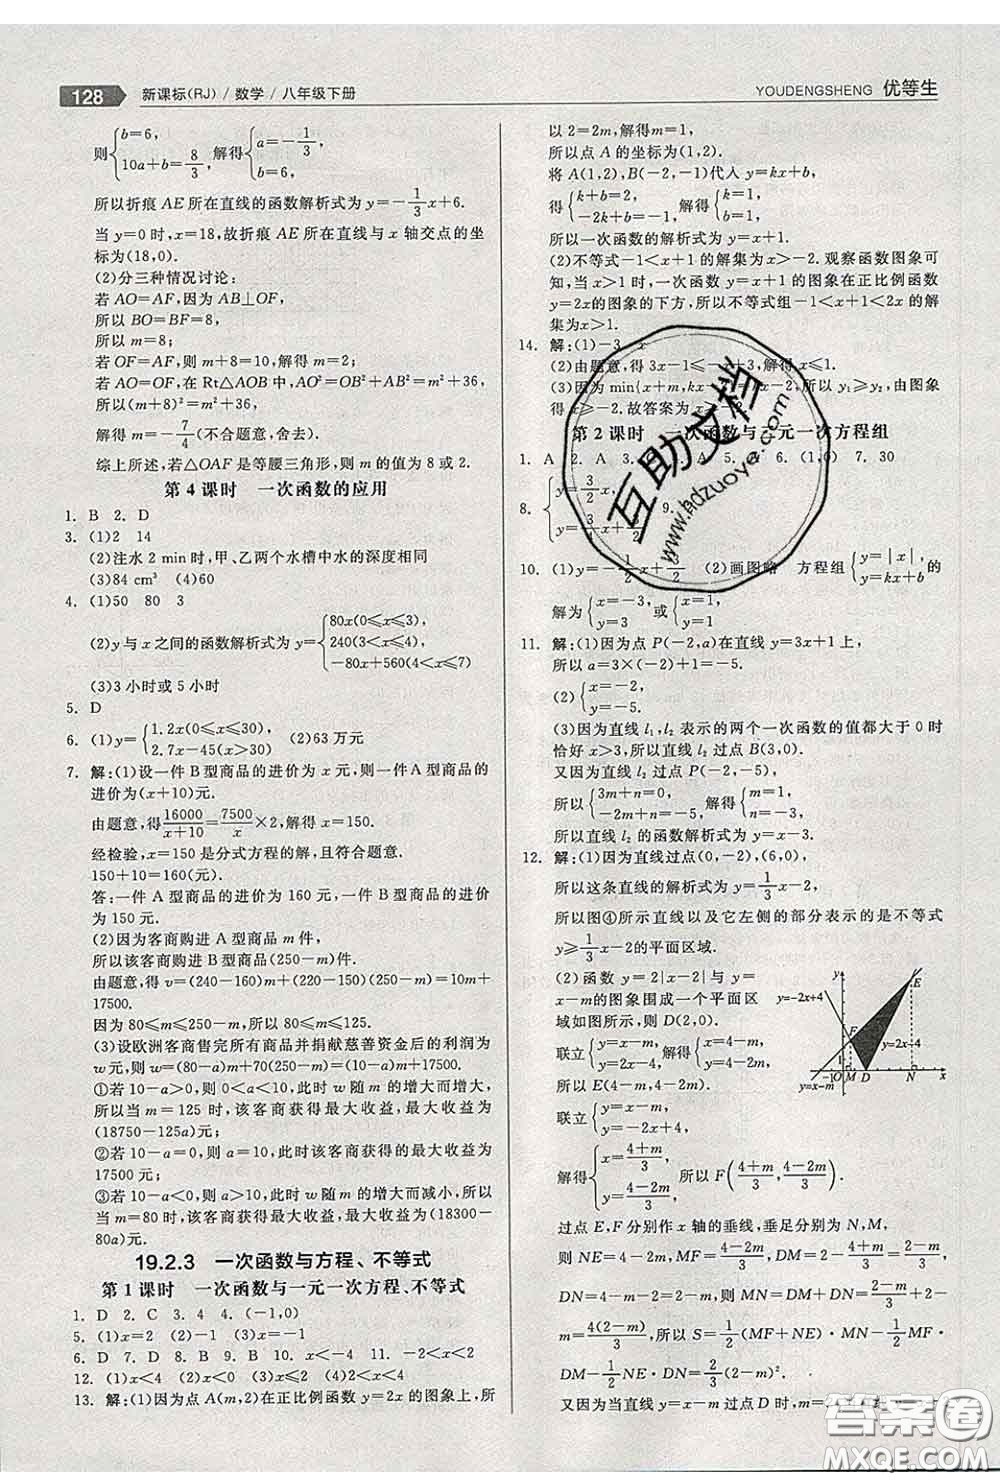 128 新课标(RJ) / 数学 / 八年级下册
YOUDENGSHENG 优等生
则{b=6, 10a+b=8/3, 解得{a=-1/3, b=6.
所以折痕 AE 所在直线的函数解析式为 y=-1/3x+6.
当 y=0 时,x=18,故折痕 AE 所在直线与 x 轴交点的坐
标为(18,0).
(2)分三种情况讨论:
若 AO=AF,因为 AB⊥OF,
所以 BO=BF=8,
所以 m=8;
若 OF=AF,则 m+8=10,解得 m=2;
若 AO=OF,在 Rt△AOB 中,AO²=OB²+AB²=m²+36,
所以(m+8)²=m²+36,
解得 m=-7/4(不合题意,舍去).
综上所述,若△OAF 是等腰三角形,则 m 的值为 8 或 2.
第 4 课时 一次函数的应用
1. B 2. D
3. (1)2 14
(2)注水 2 min 时,甲、乙两个水槽中水的深度相同
(3)84 cm³ (4)60
4. (1)50 80 3
(2)y 与 x 之间的函数解析式为 y={80x(0≤x≤3), 240(3<x≤4), -80x+560(4<x≤7)
(3)3 小时或 5 小时
5. D
6. (1)y={1.2x(0≤x≤30), 2.7x-45(x>30) (2)63 万元
7. 解:(1)设一件 B 型商品的进价为 x 元,则一件 A 型商品的
进价为(x+10)元.
由题意,得16000/(x+10)=7500/x×2,解得 x=150.
经检验,x=150 是分式方程的解,且符合题意.
150+10=160(元).
答:一件 A 型商品的进价为 160 元,一件 B 型商品的进价
为 150 元.
(2)因为客商购进 A 型商品 m 件,
所以该客商购进 B 型商品(250-m)件.
由题意,得 v=(240-160)m+(220-150)(250-m)=10m+
17500.
因为 80≤m≤250-m,所以 80≤m≤125.
(3)设欧洲客商售完所有商品并捐献慈善资金后的利润为
w 元,则 w=(80-a)m+70(250-m)=(10-a)m+17500.
①若 10-a>0,则 0<a<10,此时 w 随 m 的增大而增大,
所以当 m=125 时,该客商获得最大收益,最大收益为
(18750-125a)元;
②若 10-a=0,则 a=10,此时该客商获得的最大收益为
17500 元;
③若 10-a<0,则 a>10,此时 w 随 m 的增大而减小,所以
当 m=80 时,该客商获得最大收益,最大收益为(18300-
80a)元.
19.2.3 一次函数与方程、不等式
第 1 课时 一次函数与一元一次方程、不等式
1. D 2. C 3. 4 4. (-1,0)
5. (1)x=2 (2)-1 (3)x=-1
6. D 7. D 8. D 9. x>1 10. x<4 11. -2
12. (1)x<4 (2)x<0 (3)x≤2 (4)2<x<4
13. 解:(1)因为点 A(m,2)在正比例函数 y=2x 的图象上,所
以 2=2m,解得 m=1,
所以点 A 的坐标为(1,2).
将 A(1,2),B(-2,-1)代入 y=kx+b,
得{k+b=2, -2k+b=-1, 解得{k=1, b=1.
所以一次函数的解析式为 y=x+1.
(2)不等式-1<x+1 的解集为 x>-2. 观察函数图象可
知,当 x>1 时,一次函数 y=x+1 的图象在正比例函数
y=2x 的图象的下方,所以不等式组-1<x+1<2x 的解
集为 x>1.
14. 解:(1)-3 x
(2)由题意,得 3x-1≤-x+3,解得 x≤1.
(3)因为 min{x+m,kx-2}=kx-2,所以 y₁≥y₂,由图象
得 x≥-2.故答案为 x≥-2.
第 2 课时 一次函数与二元一次方程组
1. A 2. A 3. 4. A 5. 6. (1,0) 7. 30
8. {y=3/2x, y= 9.
10. (1)y=-1/2x+ (2)画图略 方程组{y=|x|, y=kx+b 的
解为{x=-3, y=3 或{x=1, y=1
11. 解:(1)因为点 P(-2,a)在直线 y=3x+1 上,
所以 a=3×(-2)+1=-5.
(2){x=-2, y=-5.
(3)因为直线 l₁,l₂ 表示的两个一次函数的值都大于 0 时
恰好 x>3,所以直线 l₂ 过点 B(3,0).
又因为直线 l₂ 过点 P(-2,-5),
所以{3m+n=0, -2m+n=-5, 解得{m=1, n=-3.
所以直线 l₂ 的函数解析式为 y=x-3.
12. 解:(1)因为直线过点(0,-2),(6,0),
所以这条直线的解析式为 y=1/3x-2.
所以图④所示直线以及它左侧的部分表示的是不等式
y≥1/3x-2 的平面区域.
(2)函数 y=2|x-2|与 y=
x-m 的图象围成一个平面区
域如图所示,则 D(2,0).
联立{y=x-m, y=2x-4, 解得{x=4-m, y=4-2m.
所以 E(4-m,4-2m).
联立{y=x-m, y=-2x+4,
解得{x=(4+m)/3, y=(4-2m)/3. 所以 F((4+m)/3,(4-2m)/3).
y y=-2x+4 E F y=2x-4 1 -1 O M D N x y=x-m
过点 E,F 分别作 x 轴的垂线,垂足分别为 N,M,
则 NE=4-2m,MF=(4-2m)/3,DM=2-(4+m)/3=(2-m)/3,
DN=4-m-2=2-m,则 MN=DM+DN=(2-m)/3+2-
m=4(2-m)/3,所以 S=1/2(MF+NE)·MN-1/2MF·
DM-1/2NE·DN=2/3(2-m)².
又因为当直线 y=x-m 过点 D 时,m=
互助文档
www.hdzuoye.com
答案圈
MXQE.COM